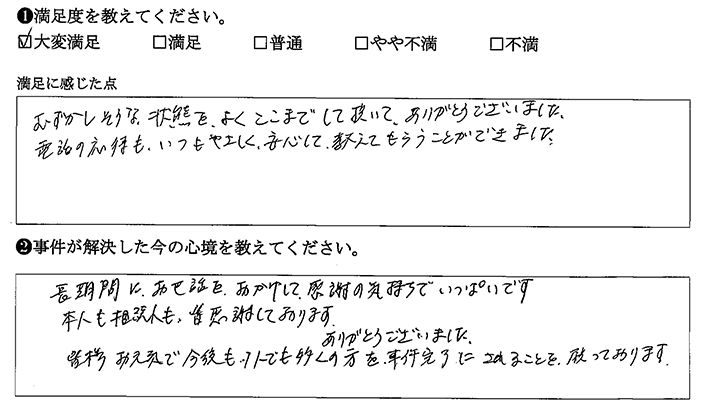 ❶満足度を教えてください。
☑大変満足 □満足 □普通 □やや不満 □不満
満足に感じた点
むずかしそうな状態を、よくここまでして頂いて、ありがとうございました。
電話の応待も、いつもやさしく、安心して、教えてもらうことができました。
❷事件が解決した今の心境を教えてください。
長期間に、お世話を、おかけして、感謝の気持ちでいっぱいです
本人も相談人も、皆感謝しております。
ありがとうございました。
皆様 お元気で今後も、1人でも多くの方を、事件完了に されることを、 っております。